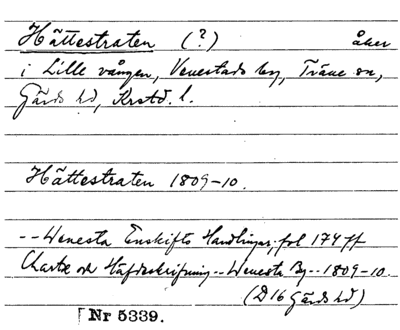 Hättestraten (?) åker
i Lille vången, Venestads by, Träne sn,
Gärds hd, Krstd. l.
Hättestraten 1809-10.
--Wenesta Enskifts Handlingar, fol 174 ff
Charta och Häfdeskrifning--Wenesta By--1809-10.
(D16 Gärds hd)
Nr 5339.